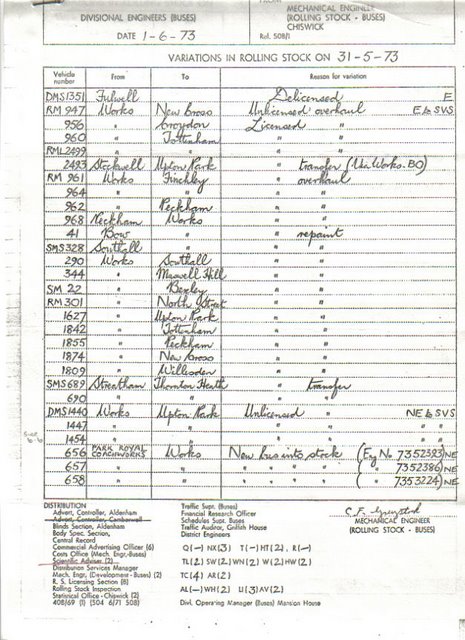 DIVISIONAL ENGINEERS (BUSES)
DATE 1-6-73
FROM
MECHANICAL ENGINEER
(ROLLING STOCK - BUSES)
CHISWICK
Ref. 508/1
VARIATIONS IN ROLLING STOCK ON 31-5-73
Vehicle number From To Reason for variation
DMS1351 Fulwell Delicensed E
RM 947 Works New Cross Unlicensed overhaul E to SVS
956 " Croydon Licensed "
960 " Tottenham " "
RML2499 " " " "
2493 Stockwell Upton Park " transfer (Via Works. BO)
RM 961 Works Finchley " overhaul
964 " " " "
962 " Peckham " "
968 Peckham Works " "
41 Bow " " repaint
SMS328 Southall " " "
290 Works Southall " "
344 " Muswell Hill " "
SM 22 " Bexley " "
RM 301 " North Street " "
1627 " Upton Park " "
1842 " Tottenham " "
1855 " Peckham " "
1874 " New Cross " "
1809 " Willesden " "
SMS689 Streatham Thornton Heath " transfer
690 " " " "
DMS1440 Works Upton Park Unlicensed NE to SVS
1447 " " " "
1454 " " " "
656 PARK ROYAL COACHWORKS Works New bus into stock (Eng No 7352383) NE
657 " " " " " " ( " 7352386) NE
658 " " " " " " ( " 7353224) NE
DISTRIBUTION
Advert. Controller, Aldenham
Advert. Controller, Camberwell
Blinds Section, Aldenham
Body Spec. Section,
Central Record
Commercial Advertising Officer (6)
Costs Office (Mech. Engr.-Buses)
Scientific Adviser (2)
Distribution Services Manager
Mech. Engr. (Development - Buses) (2)
R. S. Licensing Section (8)
Rolling Stock Inspection
Statistical Office - Chiswick (2)
408/69 (1) (504 6/71 508)
Traffic Supt. (Buses)
Financial Research Officer
Schedules Supt. Buses
Traffic Auditor, Griffith House
District Engineers
Q(-) NX(3) T(-) HT(2), R(-)
TL(2) SW(2) WN(2) W(2) HW(2)
TC(4) AR(2)
AL(-) WH(2) U(3) AV(2)
Divl. Operating Manager (Buses) Mansion House
MECHANICAL ENGINEER
(ROLLING STOCK - BUSES)